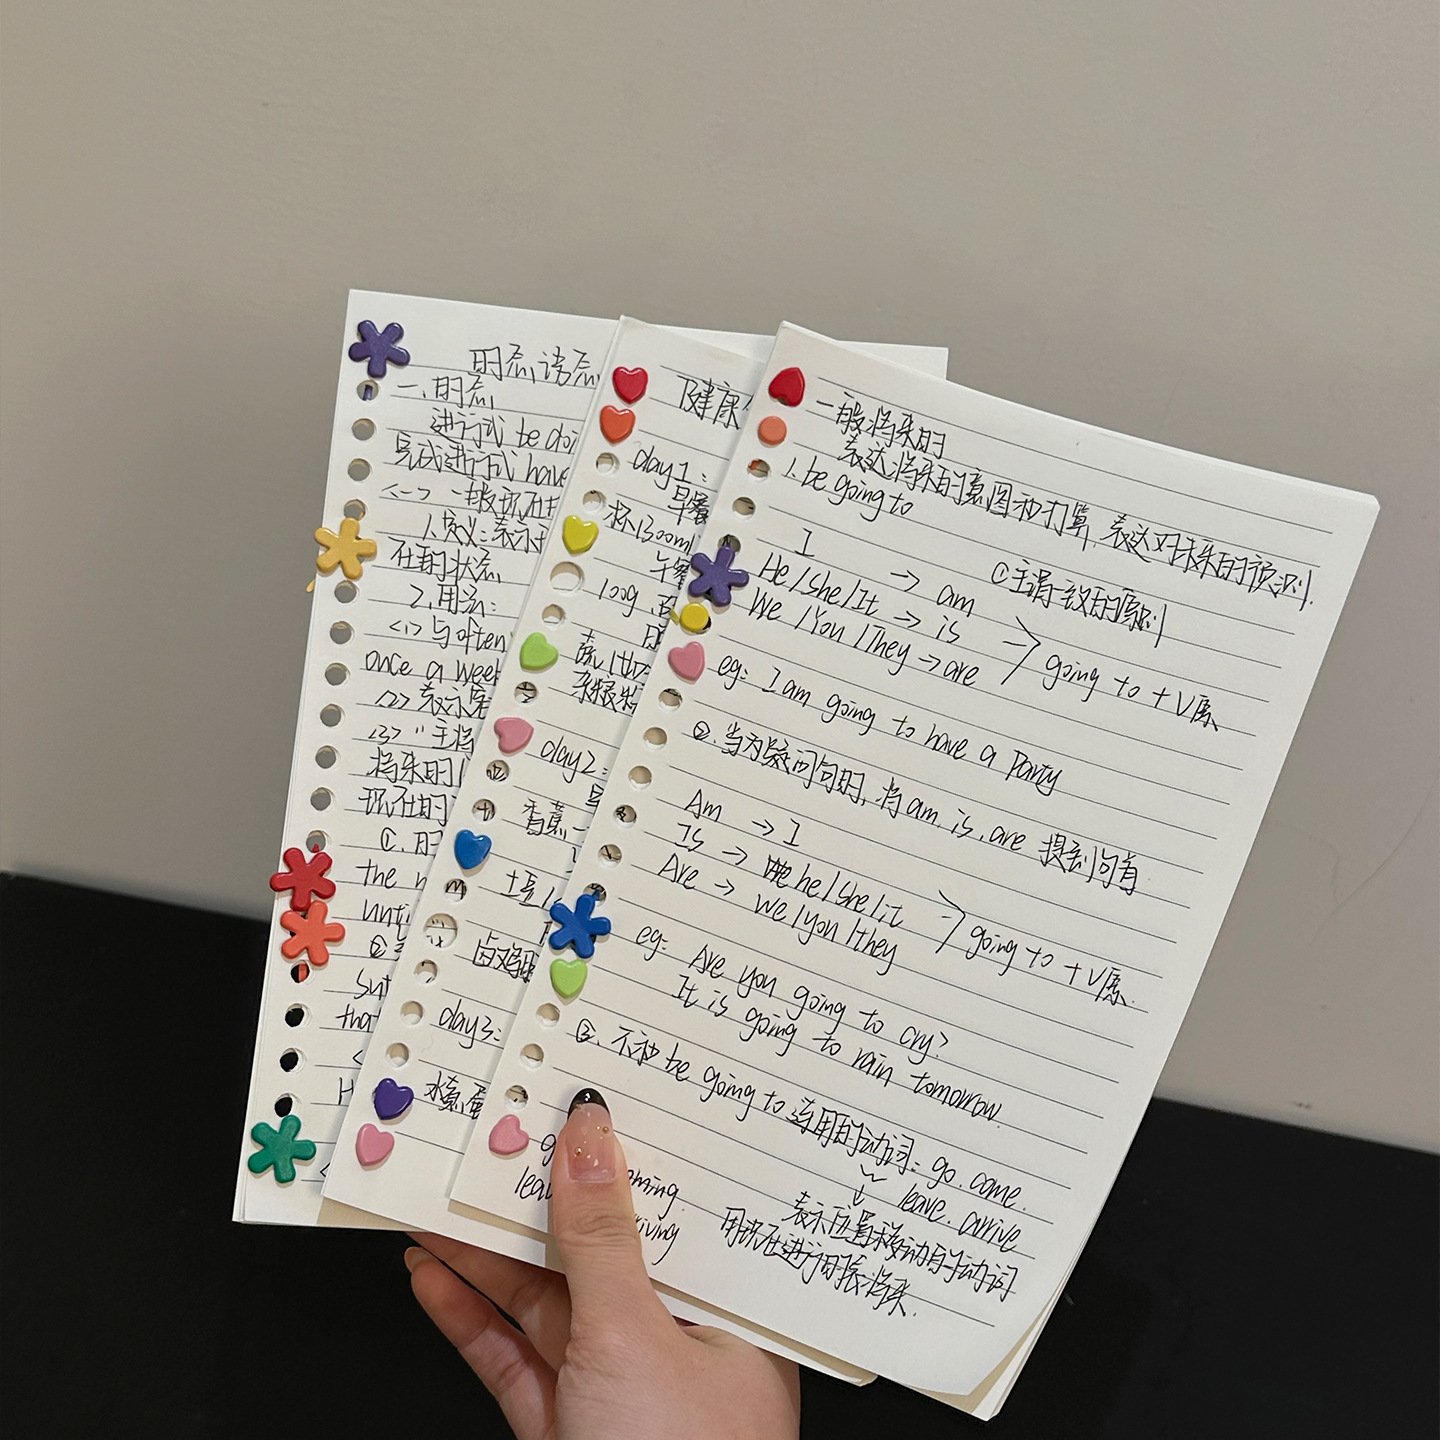 时态语态
一、时态
进行式 be doi
完成进行式 have
<一> 一般现在时
1.定义：表示
在的状态
2.用法：
<1> 与often
once a week
<2> 表示客
<3> "主将
将来的
现在的
①.时
the
until
②
that
健康
day1：
早餐
杯1300ml
午餐
100g
杂粮
day2：
香蕉一
土豆1
卤鸡腿
day3：
水煮蛋
一般将来时
表达将来的意图和打算，表达对未来的预测.
1.be going to
①主谓一致的原则
I -> am
He/She/It -> is
We/You/They -> are
going to + V原
eg: I am going to have a Party
②.当为疑问句时,将am.is.are 提到句首
Am -> I
Is -> he/she/it
Are -> we/you/they
going to + V原.
eg: Are you going to cry?
It is going to rain tomorrow.
③.不和be going to 连用的动词：go.come.
leave.arrive
表示位置移动的动词
用现在进行时表将来.
oming.
leav
riving